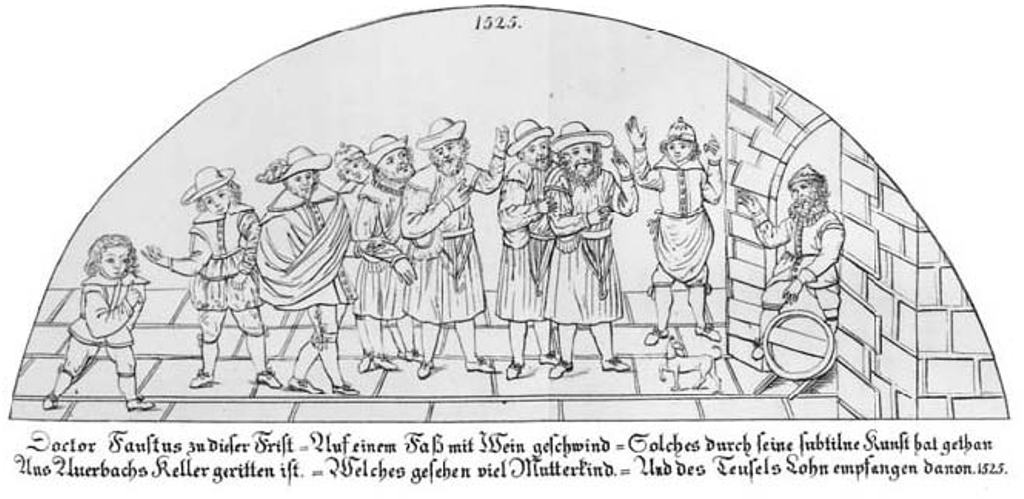 1525.
Doctor Faustus zu dieser Frist = Auf einem Faß mit Wein geschwind = Solches durch seine subtilne Kunst hat gethan
Aus Auerbachs Keller geritten ist. = Welches gesehen viel Mutterkind. = Und des Teufels Lohn empfangen davon. 1525.